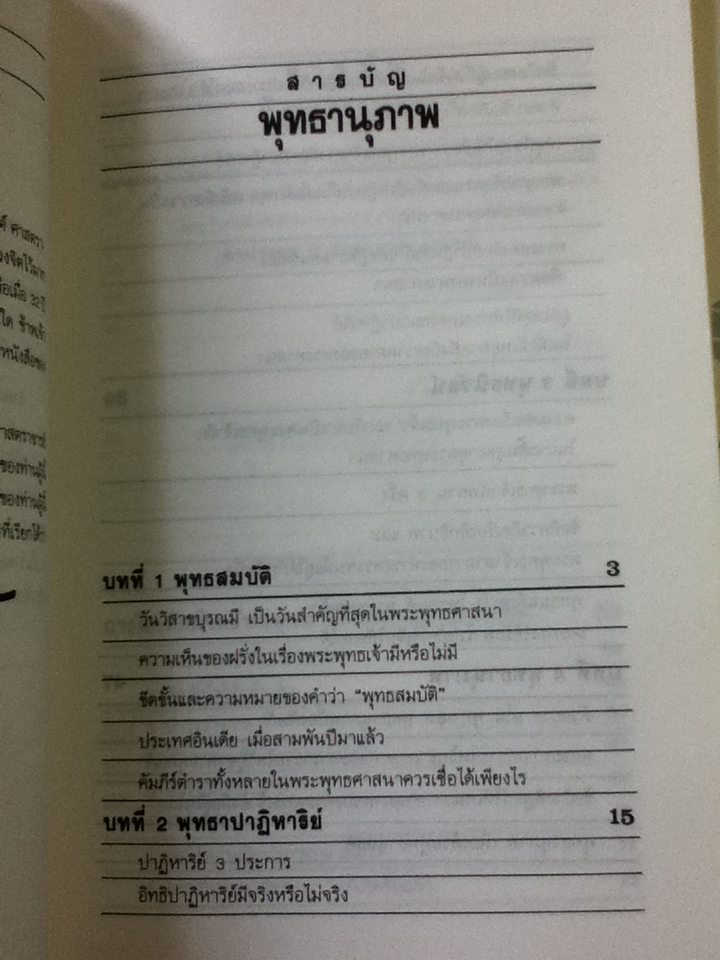 สารบัญ
พุทธานุภาพ
บทที่ 1 พุทธสมบัติ 3
วันวิสาขบุรณมี เป็นวันสำคัญที่สุดในพระพุทธศาสนา
ความเห็นของฝรั่งในเรื่องพระพุทธเจ้ามีหรือไม่มี
ขีดขั้นและความหมายของคำว่า "พุทธสมบัติ"
ประเทศอินเดีย เมื่อสามพันปีมาแล้ว
คัมภีร์ตำราทั้งหลายในพระพุทธศาสนาควรเชื่อได้เพียงไร
บทที่ 2 พุทธาปาฏิหาริย์ 15
ปาฏิหาริย์ 3 ประการ
อิทธิปาฏิหาริย์มีจริงหรือไม่จริง
ศาสตรา
32 ปี
ใด ข้าพเจ้า
หนังสือของ
าสตราจารย์
ของท่านผู้นี้
ของท่านผู้นี้
ที่เรียกได้ว่า